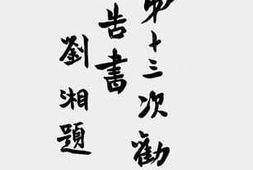 第十三次勸
告書
劉湘題